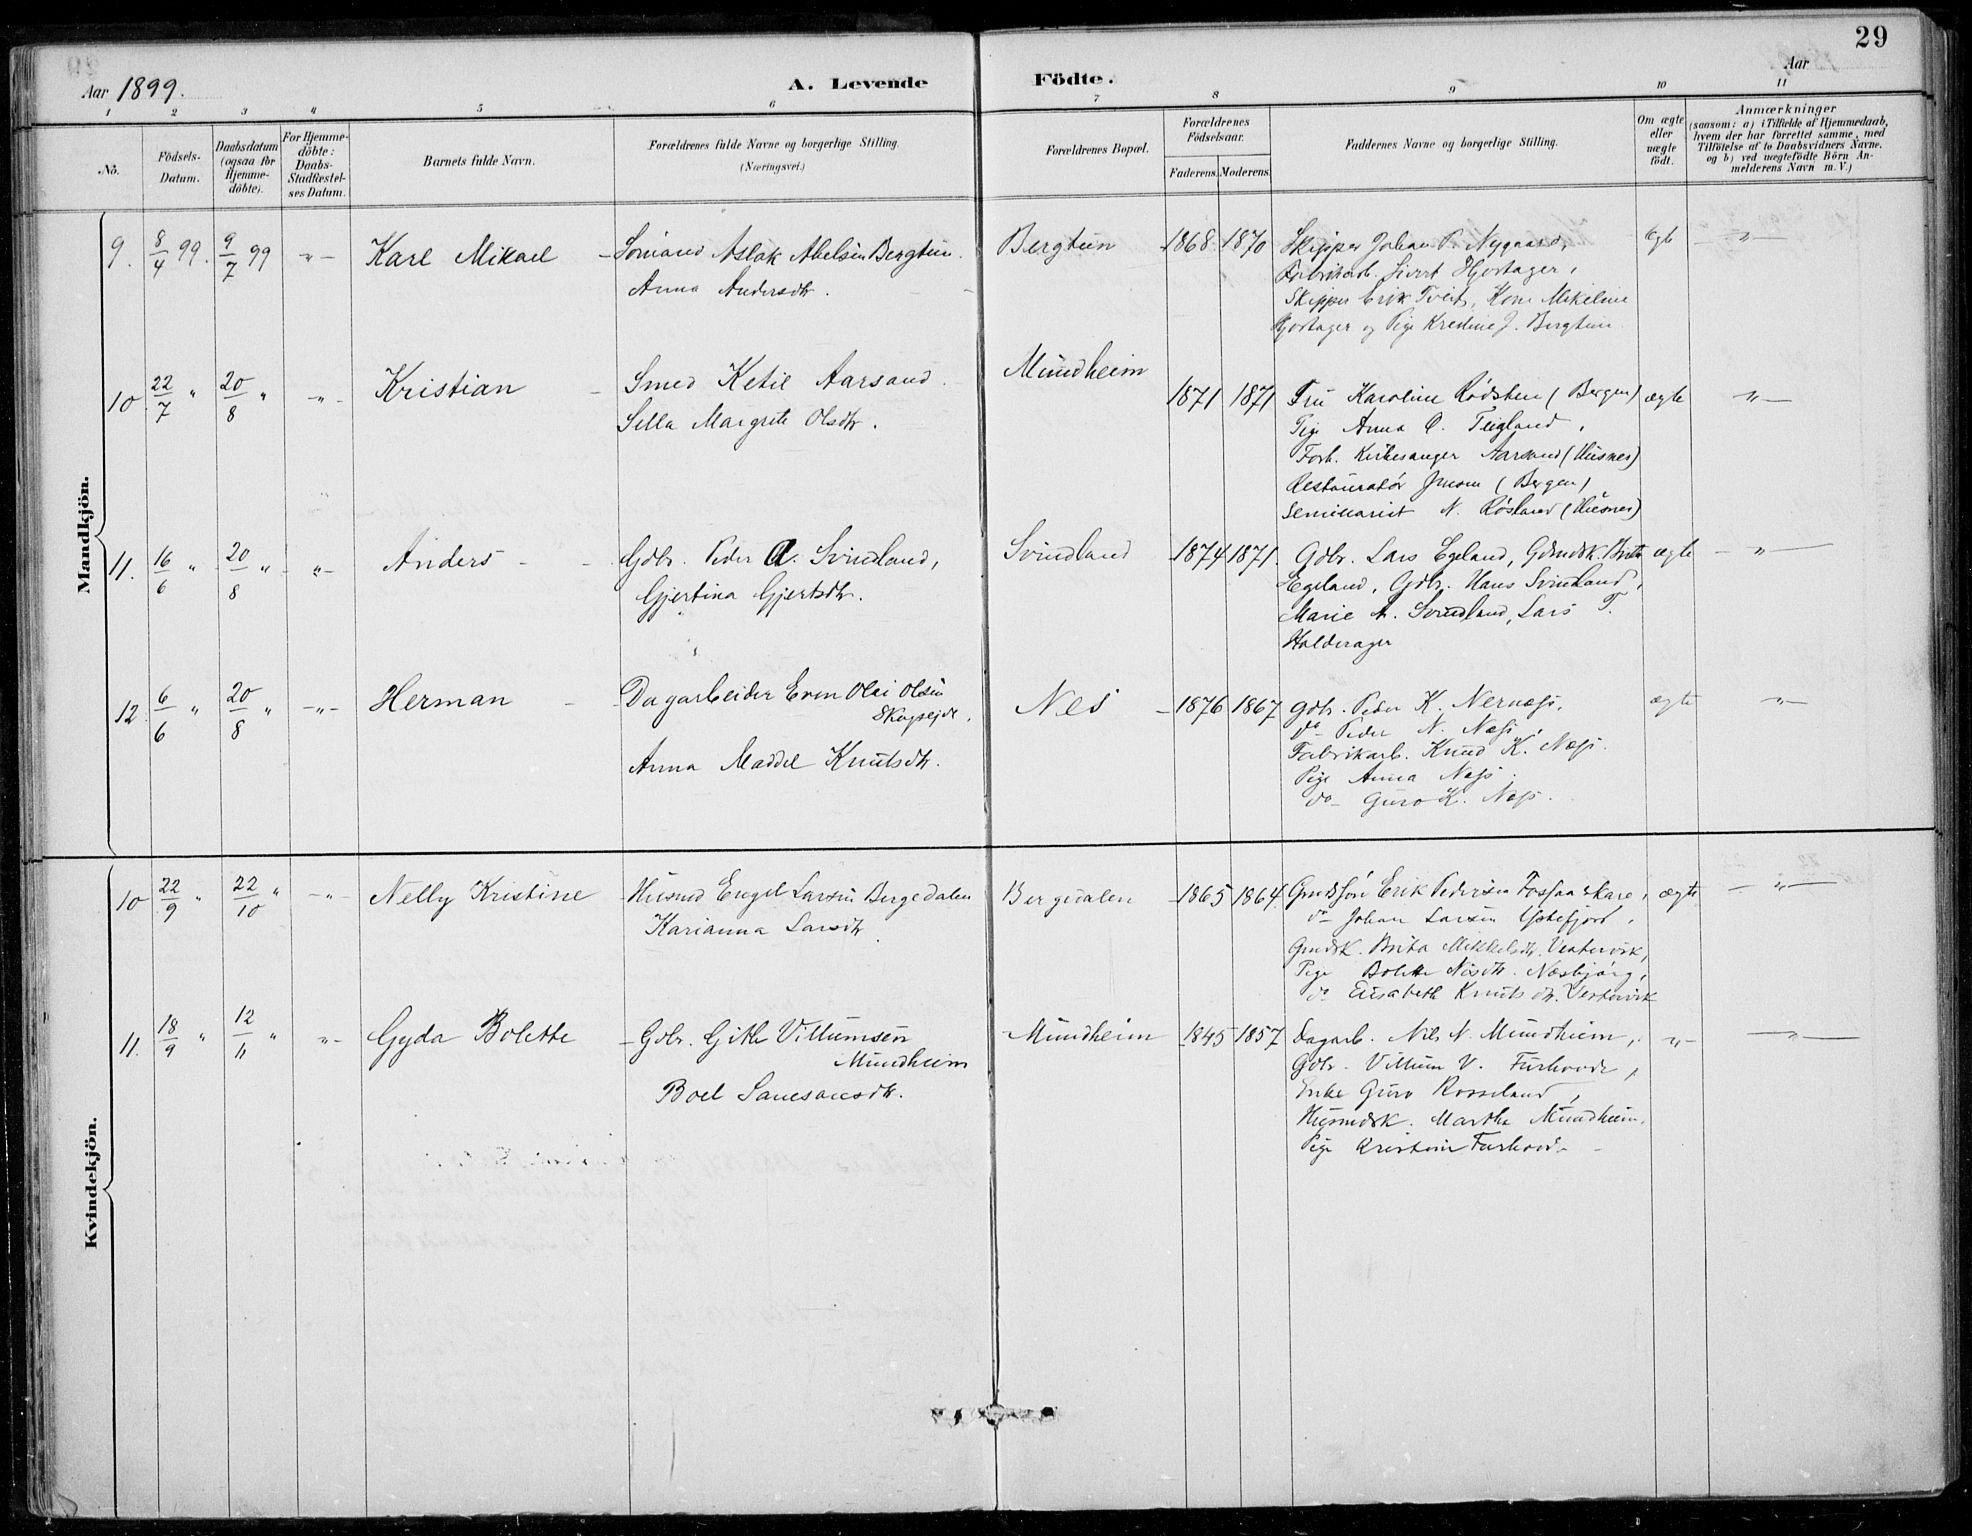 29
Aar 1899.
A. Levende Födte.
Aar
1 2 3 4 5 6 7 8 9 10 11
No.
Födsels-
Datum.
Daabsdatum
(ogsaa for
Hjemme-
döbte).
For Hjemme-
döbte:
Daabs-
Stadfestel-
ses Datum.
Barnets fulde Navn.
Forældrenes fulde Navne og borgerlige Stilling.
(Næringsvei.)
Forældrenes Bopæl.
Forældrenes
Födselsaar.
Faderens. Moderens.
Faddernes Navne og borgerlige Stilling.
Om ægte
eller
uægte
födt.
Anmærkninger
(saasom: a) i Tilfælde af Hjemmedaab,
hvem der har forrettet samme, med
Tilföielse af to Daabsvidners Navne,
og b) ved uægtefödte Börn An-
melderens Navn m. V.)
Mandkjön.
9. 8/4 99. 9/7 99 -"- Karl Mikael - Sömand Aslak Abelsen Bergtun.
Anna Andersdtr.
Bergtun 1868. 1870 Skipper Johan P. Nygaard,
Fabrikarb. Sivert Hjortager,
Skipper Erik Tveit, Kone Mikeline
Hjortager og Pige Kristine J. Bergtun.
Egte -"-
10 22/7 " 20/8 " -"- Kristian - Smed Ketil Aarsand.
Sella Margrete Olsdtr.
Mundheim
1871 1871 Fru Karoline Rödsten (Bergen) ægte -"-
Pige Anna O. Teigland,
Forh. Kirkesanger Aarsand (Husnes)
Restauratör Jensen (Bergen)
Seminarist N. Rösland (Husnes)
11. 16/6 " 20/8 " -"- Anders - - Gdbr. Peder A. Svindland,
Gjertina Gjertsdtr.
Svindland 1874 1871. Gdbr. Lars Egeland, Gdmdsk. Brita ægte -"-
Egeland, Gdbr. Hans Svindland,
Marie A. Svindland, Lars T.
Halderager
12. 6/6 " 20/8 " -"- Herman - Dagarbeider Even Olai Olsen
Skogseide,
Anna Maddel Knutsdtr.
Nes - 1876 1867 Gdbr. Peder K. Nernæss, ægte "-
do Peder N. Næss,
Fabrikarb. Knud K. Næss.
Pige Anna Næss.
do - Guro K. Næss.
Kvindekjön.
10 22/9 " 22/10 " -"- Nelly Kristine - Husmd Engel Larsen Bergedalen
Karianna Larsdtr
Bergedalen 1865 1864. Gmdssön Erik Pedersen Fosfaaskare, ægte -"-
do Johan Larsen Ystefjord,
Gmdsk. Brita Mikkelsdtr. Vestervik,
Pige Bolette Nilsdtr. Næsbjörg,
do Elisabeth Knutsdtr. Vestervik
11. 18/9 " 12/11 " "- Gyda Bolette - Gdbr. Gitle Villumsen
Mundheim
Boel Samsonsdtr.
Mundheim 1845 1857 Dagarb. Nils N. Mundheim, -"- -"-
Gdbr. Villum V. Furhovde,
Enke Guro Rosseland,
Husmdsk. Martha Mundheim.
Pige Kristine Furhovde -